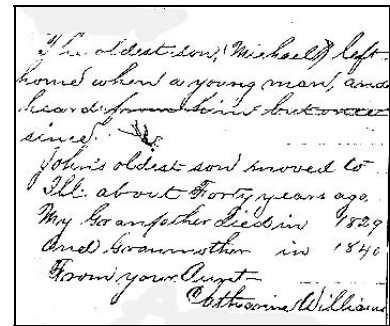 The oldest son, (Michael) left
home when a young man, and
heard from him but once
since.
John's oldest son moved to
Ill. about Forty years ago
My Grandfather died in 1829
and Granmother in 1840
From your Aunt
Catharine Williams